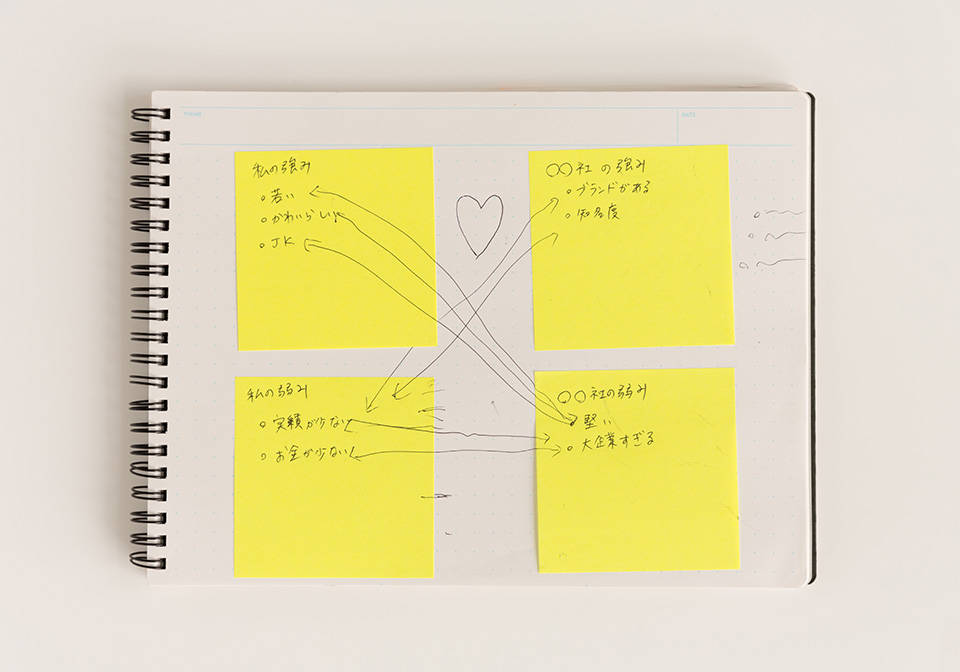 私の強み
若い
かわいらしい!
JK
〇〇社の強み
ブランドがある
知名度
私の弱み
実績が少ない
お金が少ない
〇〇社の弱み
堅い
大企業すぎる
DATE